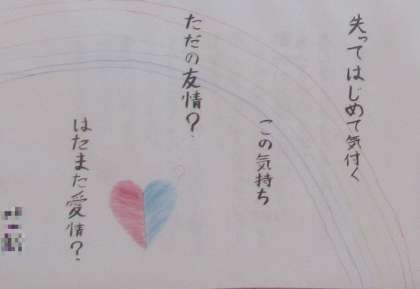 失ってはじめて気付く
この気持ち
ただの友情?
はたまた愛情?